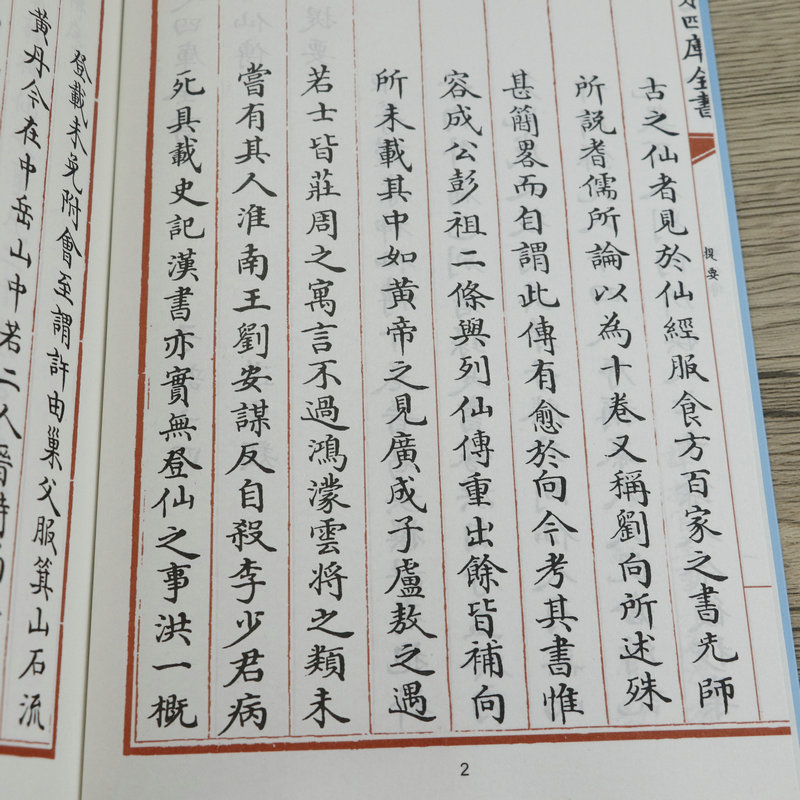 四庫全書
提要
古之仙者見於仙經服食方百家之書先師
所説耆儒所論以為十卷又稱劉向所述殊
甚簡畧而自謂此傳有愈於向今考其書惟
容成公彭祖二條與列仙傳重出餘皆補向
所未載其中如黄帝之見廣成子盧敖之遇
若士皆莊周之寓言不過鴻濛雲将之類未
嘗有其人淮南王劉安謀反自殺李少君病
死具載史記漢書亦實無登仙之事洪一概
2
登載未免附會至謂許由巢父服箕山石流
黄丹今在中岳山中若二人晋時